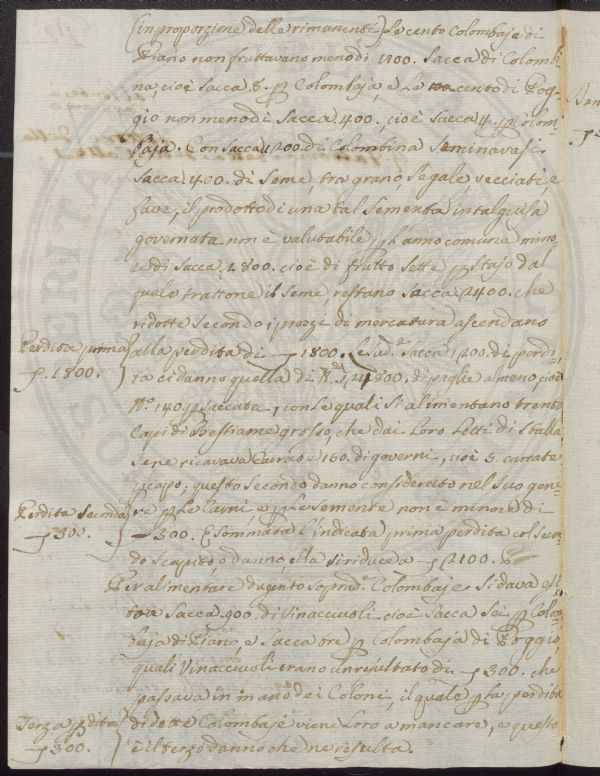 (in proporzione delle rimanenti) Le cento Colombaje di
Piano non fruttavano meno di 1200. Sacca di Colombi-
na, cioè Sacca 8. p Colombaja, e Le cento di Pog-
gio non meno di Sacca 400, cioè Sacca 4. p Colom-
baja. Con Sacca 1200. di Colombina Seminavasi
Sacca 400. di Seme, tra grano, Segale, vecciati, e
fave, il prodotto di una tal Sementa in tal guisa
governata non è valutabile p L'anno comune mino-
re di Sacca 2800. cioè di frutto Sette p Stajo dal
quale trattone il Seme, restano Sacca 2400. che
ridotte Secondo i prezzi di mercatura ascendano
Perdita prima alla perdita di 1800. Le sud.e Sacca 1200. di perdi-
1800. ta ci danno quella di 800. di paglie almeno cioè
N.o 140. p Saccata, con Le quali Si alimentano trenta
Capi di Bestiame grosso, che dai Loro Letti di Stalla
Se ne ricavava Carrate 150. di governi, cioè 5. carrate
p capo, questo Secondo danno considerato nel Suo gene-
Perdita Seconda re p Le Carni, e p Le Semente non è minore di
300. 300. E Sommata l'indicata prima perdita col Secon-
do Scapito o danno, ella Si riduce a 2100.
Per alimentare dugento Sopra d.e Colombaje Si dava
Sacca 900. di Vinacciuoli cioè Sacca Sei p Colom-
baja di Piano, e Sacca tre p Colombaja di Poggio,
quali Vinacciuoli erano un resultato di 300. che
passava in mano dei Coloni, il quale p La perdita
Terza pdita di dette Colombaje viene Loro a mancare, e questo
300. è il terzo danno che ne resulta.